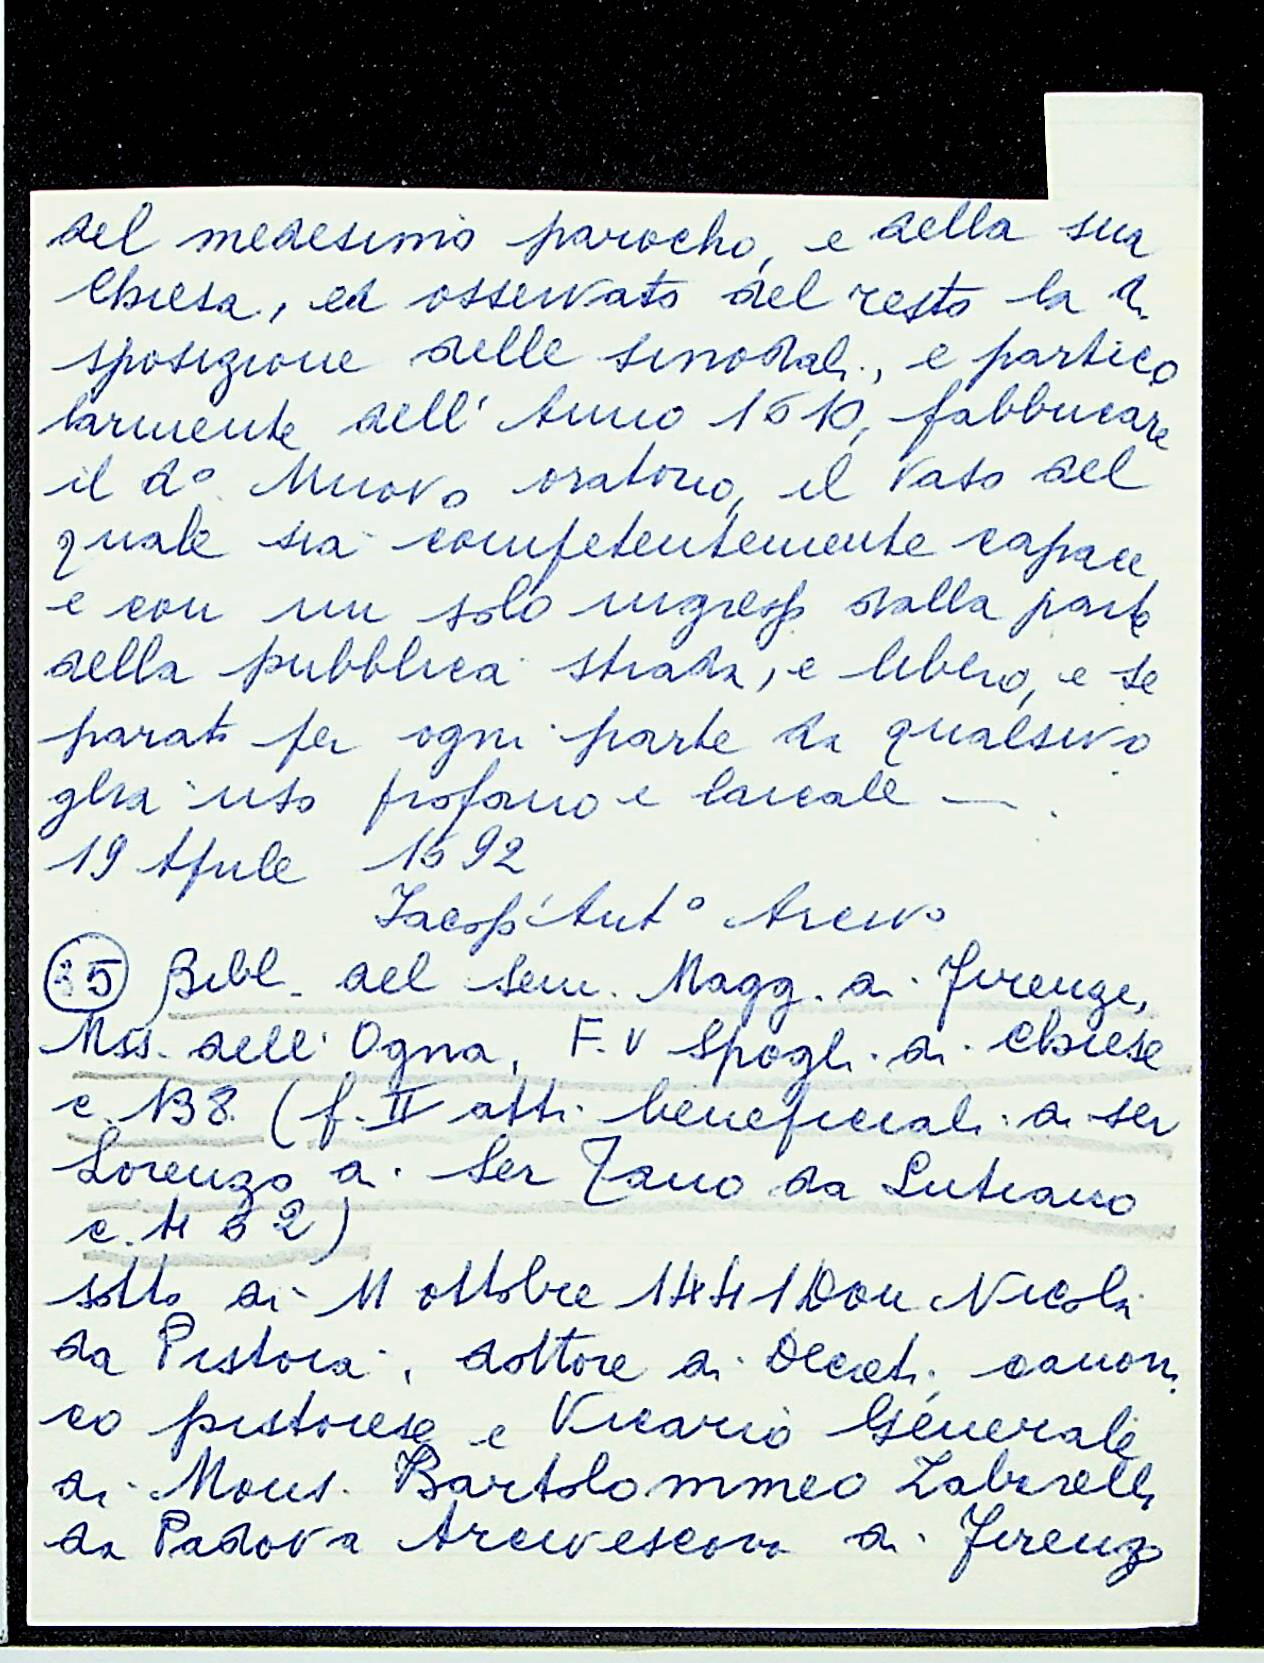 del medesimo parocho, e della sua
Chiesa, ed osservato del resto la di
sposizione delle sinodali, e partico
larmente dell' Anno 1610, fabbricare
il d° Nuovo oratorio, il Vaso del
quale sia competentemente capace,
e con un solo ingresso dalla parte
della pubblica strada, e libero, e se
parato per ogni parte da qualsivo
glia uso profano e laicale —.
19 Aprile 1692
Jacop' Ant° Arciv°
35 Bibl. del Sem. Magg. di Firenze,
Mss. dell' Ogna, F. V Spogli di Chiese
c. 138 (f. II atti beneficiali di ser
Lorenzo di Ser Tano da Lutiano
c. 462)
sotto di 11 ottobre 1441 Don Nicola
da Pistoia, dottore di Decreti, canoni
co pistoiese e Vicario Generale
di Mons. Bartolommeo Zabarelli
da Padova Arcivescovo di Firenze